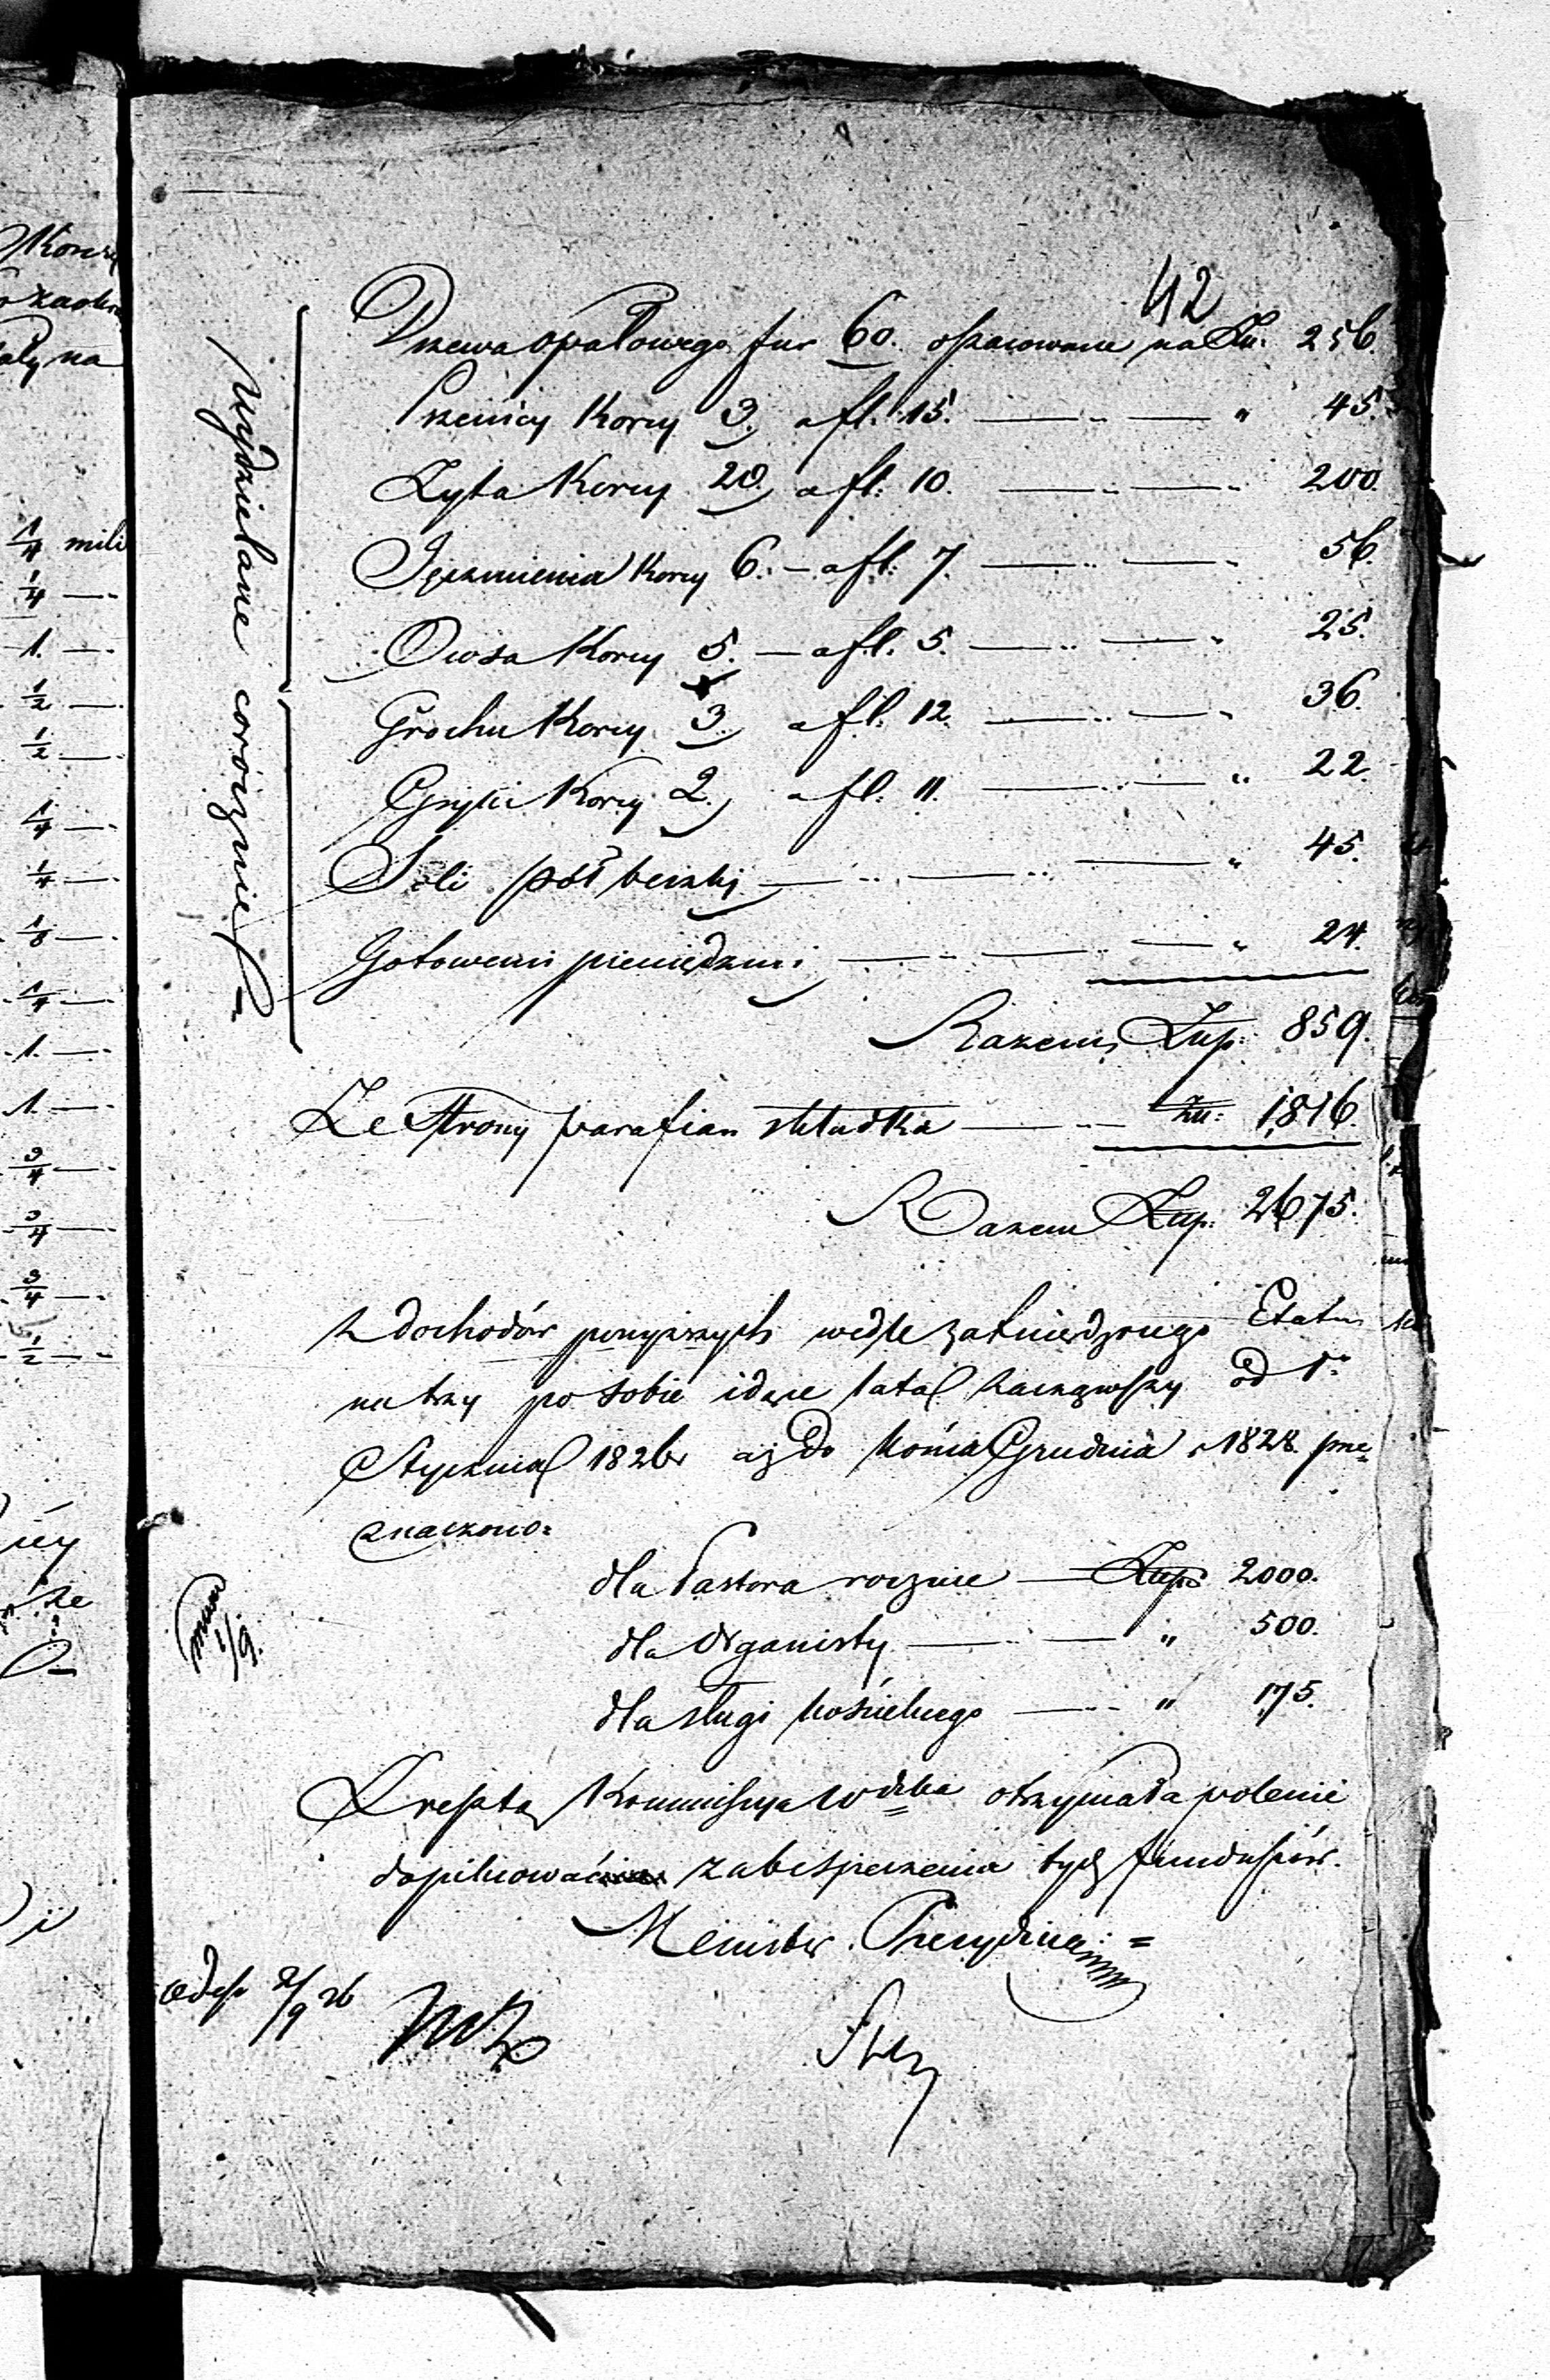 42
Drzewa opałowego fur 60. oszacowane na Złł: 256.
Pszenicy Korcy 3. a fl: 15. — " 45.
Żyta Korcy 20. a fl: 10. — " 200.
Jęczmienia Korcy 6. — a fl: 7. — " 56.
Owsa Korcy 5. — a fl. 5. — " 25.
Grochu Korcy 3. a fl: 12. — " 36.
Gryki Korcy 2. a fl: 11. — " 22.
Soli pół beczki — " 45.
Gotowemi pieniędzmi — " 24.
Wydzielane corocznie
Razem Złtp: 859.
Ze Strony parafian składka — Złł: 1,816.
Razem Złtp: 2675.
Z dochodów powyższych wedle zatwierdzonego Etatu
na trzy po sobie idące lata zacząwszy od 1o
Stycznia 1826 r aż do końca Grudnia r 1828. prze
znaczono:
dla Pastora rocznie — Złtp: 2000.
dla Organisty — " 500.
dla sługi kościelnego — " 175.
Zresztą Kommissya Wdzka otrzymała polecenie
dopilnować zabezpieczenia tych funduszów.
Minister Prezydujący
2/9 26
1/4 mili
1/4 —
1. —
1/2 —
1/2 —
1/4 —
1/4 —
1/8 —
1/4 —
1. —
1. —
3/4 —
3/4 —
3/4 —
1/2 —